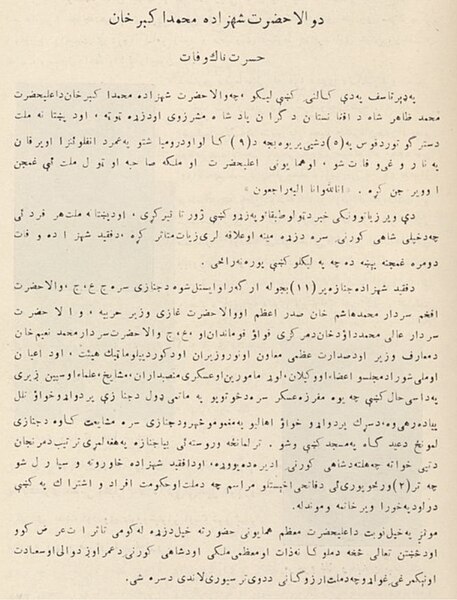 دوالاحضرت شهزاده محمداکبرخان
حسرت ناك وفات
په ډېرتاسف په دې کالنۍ کښې لیکو ، چه والاحضرت شهزاده محمداکبرخان داعلیحضرت
محمد ظاهر شاه د افغانستان د گران پادشاه مشر زوی اودزړه ټوټه ، او د پښتانه ملت
دسترگو تور دقوس په (۵) دشپې پر یوه بجه د (۹) کالو اودرومیاشتو په عمرد انفلوئنزا اویرقان
په ناروغی وفات شو ، اوهمایونی اعلیحضرت او ملکه صاحبه او ټول ملت ئې غمجن
اوویرجن کړه . «انالله وانا الیه راجعون»
دې ویر زیانوونکی خبر دټولو طبقاتو په زړو کښې ژور تاثیر کړی ، اودپښتانه ملت هر فرد ئې
چه دخپلی شاهی کورنۍ سره دزړه مینه اوعلاقه لری زیات متاثر کړه ، دفقید شهزاده وفات
دومره غمجنه پېښه ده چه په لیکلو کښې پوره نه راځی .
دفقید شهزاده جنازه پر (۱۱) بجو له ارگ راوایستل شوه دجنازې سره ج ، ع ، ج ، والاحضرت
افخم سردار محمدهاشم خان صدر اعظم اووالاحضرت غازی وزیر حربیه ، والاحضرت
سردار عالی محمدداؤدخان دمرکزی قواؤ قوماندان او ، ع ، ج والاحضرت سردار محمد نعیم خان
دمعارف وزیر اودصدارت عظمی معاون اونوروزیران اودکوردیپلوماتیك هیئت ، اود اعیان
اوملی شوراد مجلسو اعضاء اووکیلان ، لوړ مامورین اوعسکری منصبداران ، مشایخ ، علماء اوسپین ږیری
په داسی حال کښې چه یوه مفرزه عسکر سره دخوټوپو په ماتمی ډول دجنازې پردواړو خواؤ تلل
پیاده رهی وه ، دسرك پردواړو خواؤ اهالیو په مغمومو څهرو دجنازې سره مشایعت کاوه دجنازې
لمونځ دعیدگاه په مسجد کښې وشو . ترلمانځه وروسته ئې بیا جنازه په هغه لمړی ترتیب دمرنجان
دتپې خواته چه هلته دشاهی کورنۍ ادیره ده یووړه ، اودافقید شهزاده خاورو ته وسپارل شو
چه تر (۲) ورځو پوری ئې دفاتحې اخیستلو مراسم چه دملت اوحکومت افراد و اشتراك په کښې
درلود په خورا ویر خاتمه وموندله .
مونږ په خپل نوبت داعلیحضرت معظم همایونی حضور ته خپل دزړه له کومی تاثرات عرض کوو
اودځښتن تعالی څخه دملوکانه ذات اومعظمی ملکې اودشاهی کورنۍ دعمراوږدوالی اوسعادت
اونېکمرغی غواړو چه دملت ارزوگانی ددوی ترسیوری لاندی دسره شی .